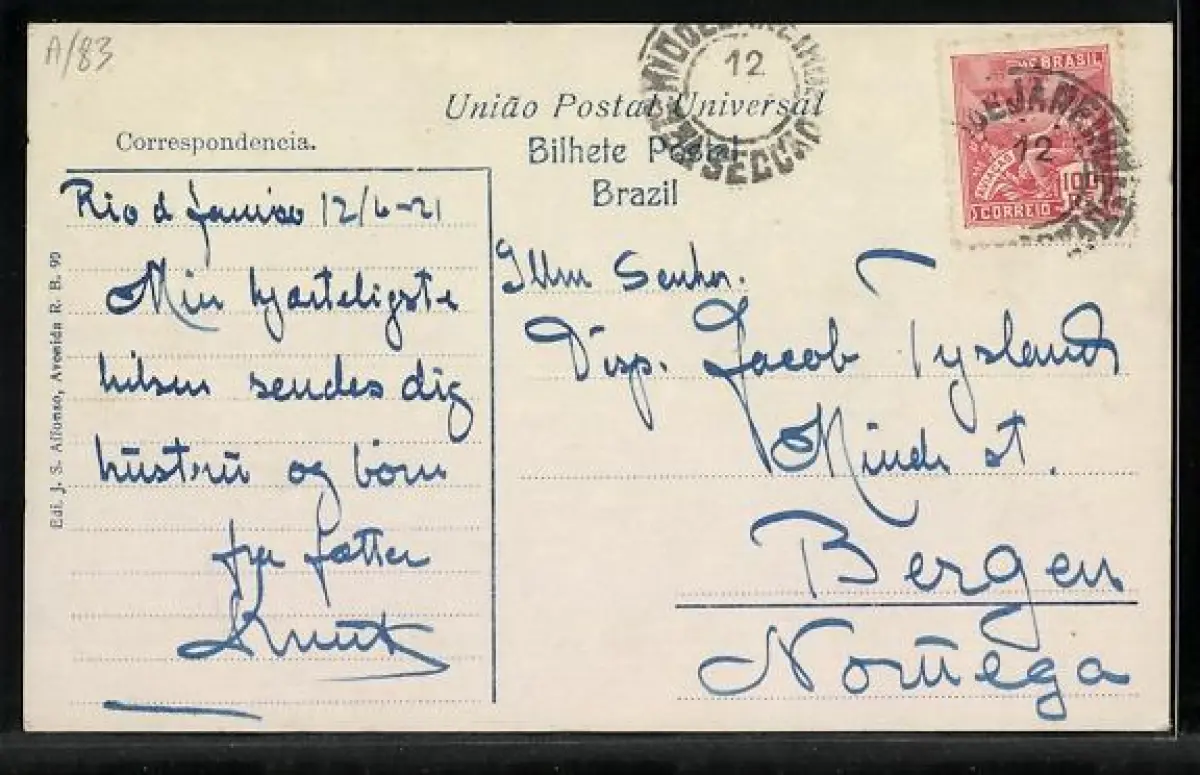 A/83
União Postal Universal
Bilhete Postal
Brazil
Correspondencia.
Rio d Janiro 12/6-21
Min hjærteligste
hilsen sendes dig
hustru og börn
fra fætter
Knut
Illm Senhor.
Disp. Jacob Tysland
Minde st.
Bergen
Noruega
Edi. J. S. Affonso, Avenida R. B. 90
BRASIL
AVIAÇÃO
100
CORREIO
12
SECÇÃO
DE JANEIRO
12